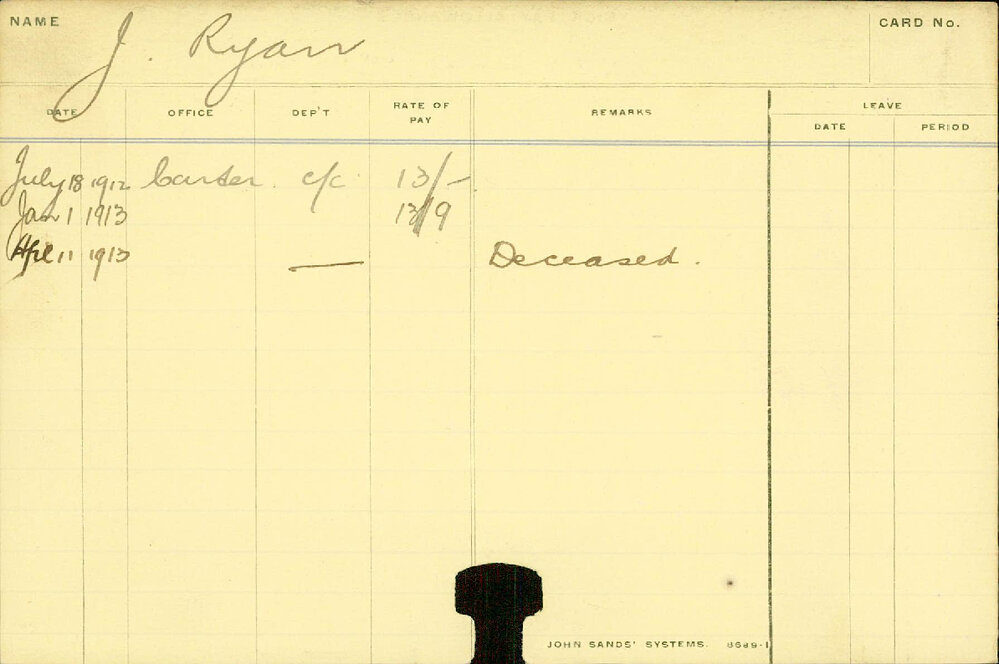 NAME J. Ryan CARD No.
DATE OFFICE DEP'T RATE OF PAY REMARKS LEAVE
DATE PERIOD
July 18 1912 Carter c/c 13/-
Jan 1 1913 13/9
Apl 11 1913 — Deceased.
JOHN SANDS' SYSTEMS. 8689-1